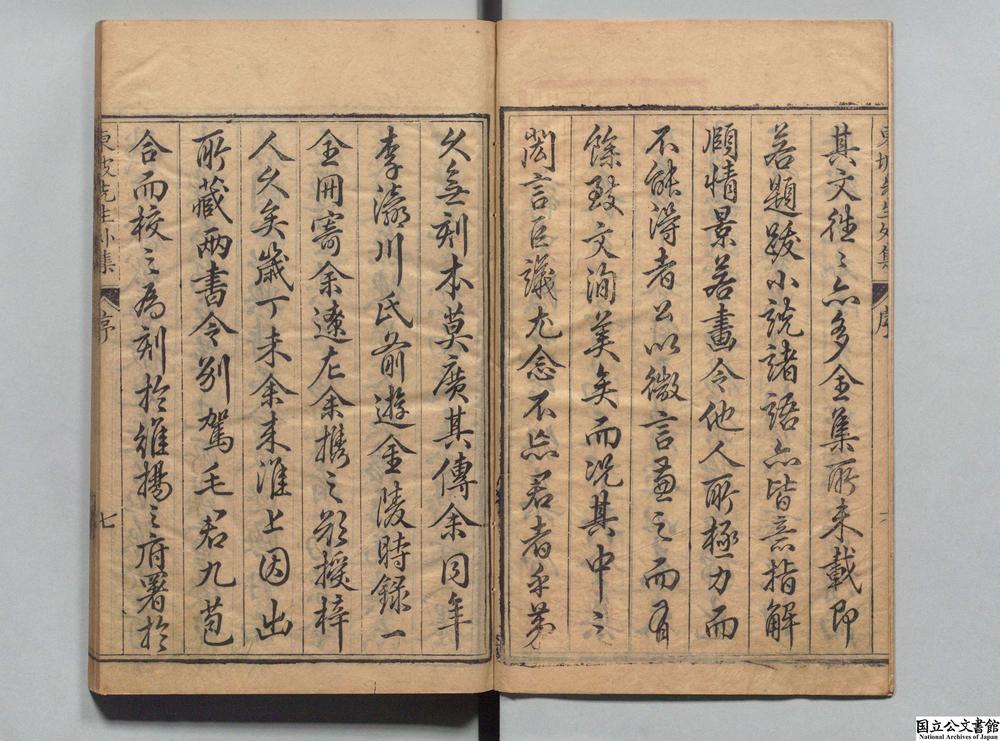 東坡先生外集
序
其文徃〻亦多全集所未載即
若題跋小說諸語亦皆意指解
頤情景若畫令他人所極力而
不能得者公以微言兼之而有
餘致文洵美矣而况其中〻
閎言臣議尤念不忘君者乎第
久無刻本莫廣其傳余同年
李瀛川氏前遊金陵時録一
全冊寄余遼左余携之欲授梓
人久矣歲丁未余来淮上因出
所藏兩書令别駕毛君九苞
合而校之為刻於維揚之府署於
東坡先生外集
序
七
国立公文書館
National Archives of Japan